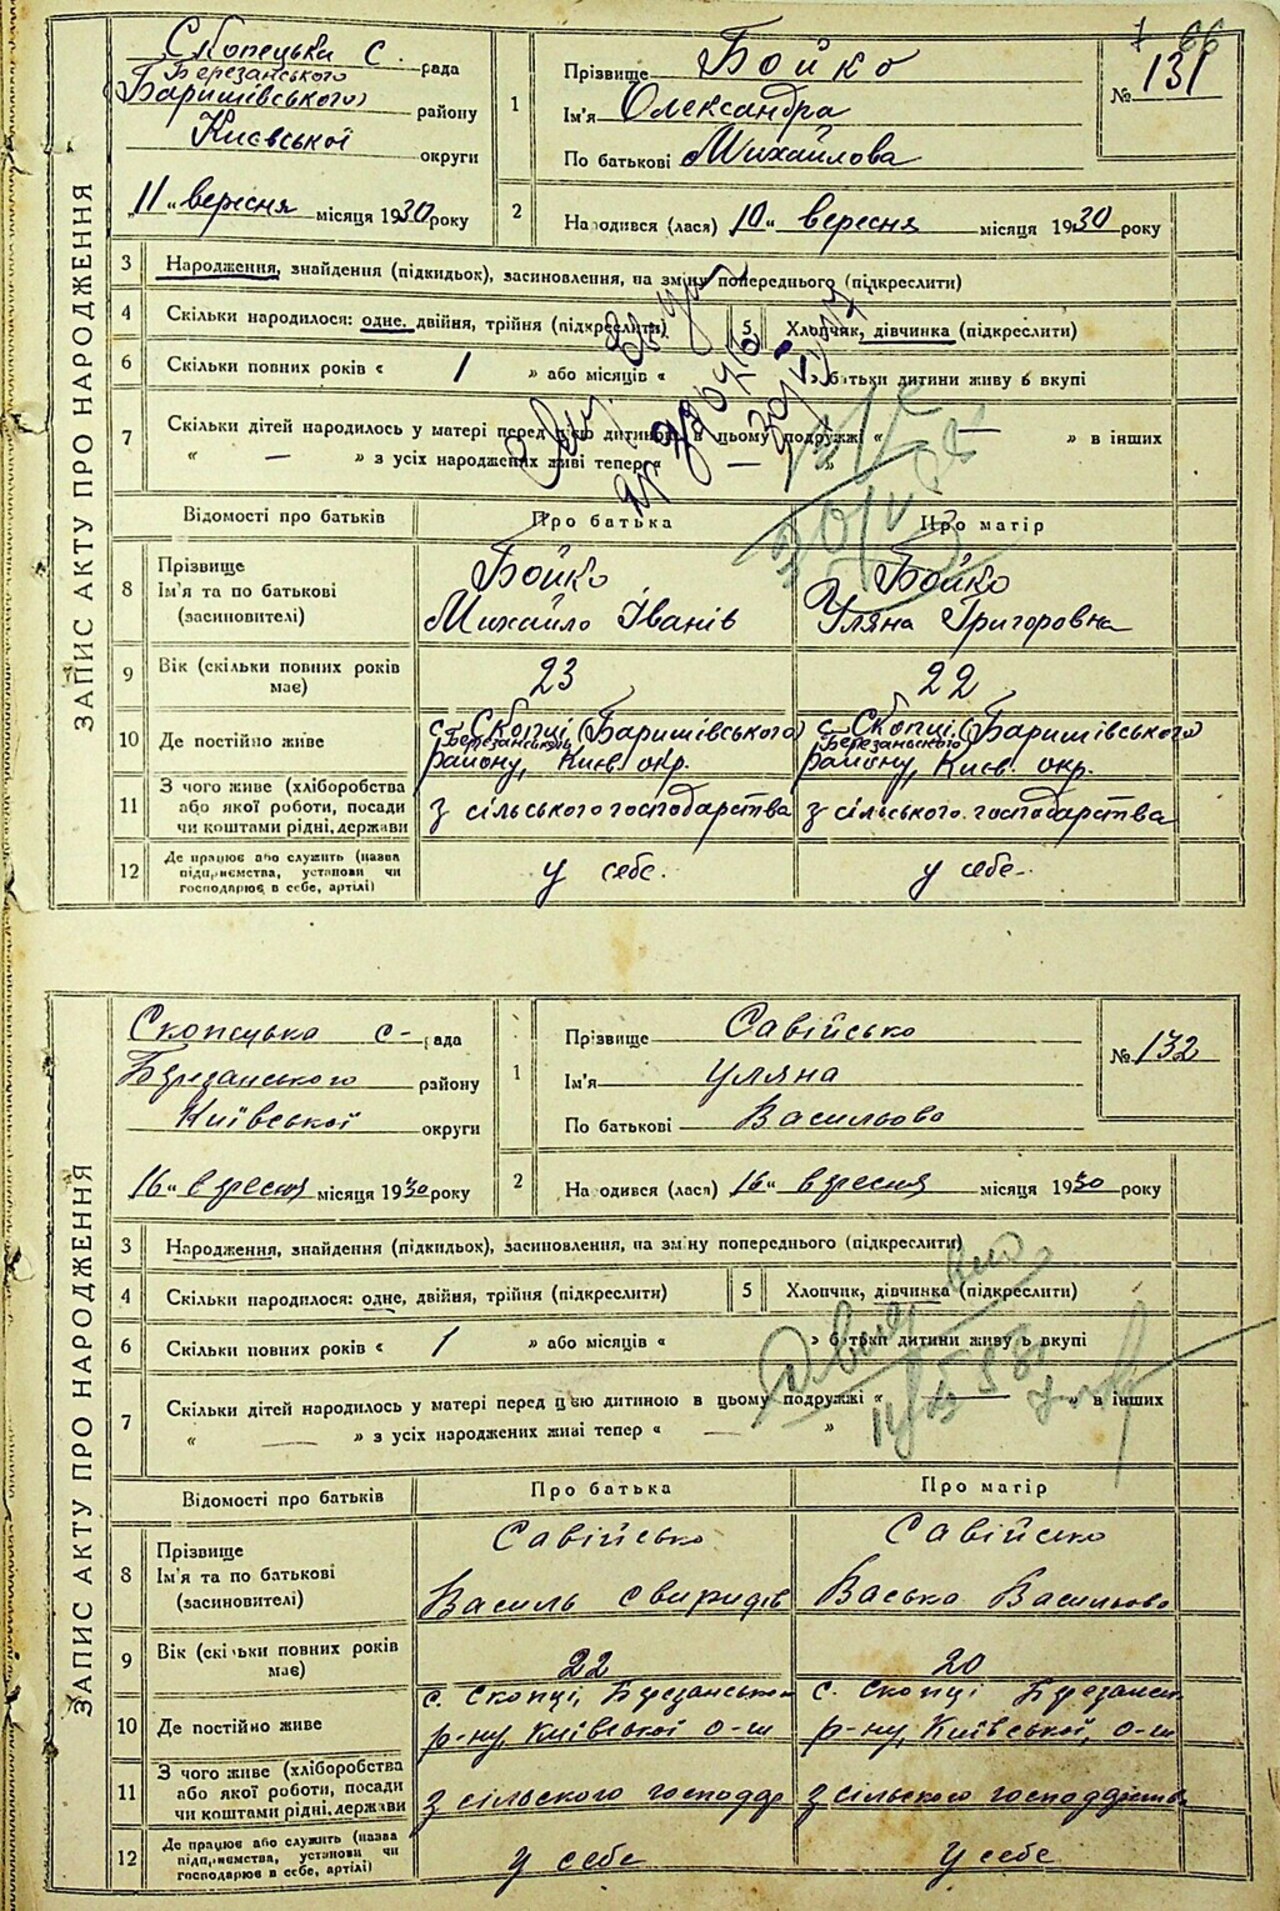 66
ЗАПИС АКТУ ПРО НАРОДЖЕННЯ
Скопецька с. рада
Березанського
(Баришівського) району
Києвської округи
„11“ вересня місяця 1930 року
1
Прізвище Бойко
Ім'я Олександра
По батькові Михайлова
№ 131
2 Народився (лася) 10“ вересня місяця 1930 року
3 Народження, знайдення (підкидьок), засиновлення, на зміну попереднього (підкреслити)
4 Скільки народилося: одне, двійня, трійня (підкреслити) 5 Хлопчик, дівчинка (підкреслити)
6 Скільки повних років « 1 » або місяців « » батьки дитини живуть вкупі
7 Скільки дітей народилось у матері перед цією дитиною в цьому подружжі « — » в інших
« — » з усіх народжених живі тепер « — »
Відомості про батьків Про батька Про матір
8 Прізвище
Ім'я та по батькові
(засиновителі)
Бойко
Михайло Іванів
Бойко
Уляна Григоровна
9 Вік (скільки повних років має) 23 22
10 Де постійно живе
с. Скопці (Баришівського)
Березанського
району, Києв. окр.
с. Скопці (Баришівського)
Березанського
району, Києв. окр.
11 З чого живе (хліборобства
або якої роботи, посади
чи коштами рідні, держави
з сільського господарства з сільського господарства
12 Де працює або служить (назва
підприємства, установи чи
господарює в себе, артілі)
у себе. у себе.
ЗАПИС АКТУ ПРО НАРОДЖЕННЯ
Скопецька с- рада
Березанського району
Київської округи
16“ вересня місяця 1930 року
1
Прізвище Савійсько
Ім'я Уляна
По батькові Васильова
№ 132
2 Народився (лася) 16“ вересня місяця 1930 року
3 Народження, знайдення (підкидьок), засиновлення, на зміну попереднього (підкреслити)
4 Скільки народилося: одне, двійня, трійня (підкреслити) 5 Хлопчик, дівчинка (підкреслити)
6 Скільки повних років « 1 » або місяців « » батьки дитини живуть вкупі
7 Скільки дітей народилось у матері перед цією дитиною в цьому подружжі « — » в інших
« — » з усіх народжених живі тепер « — »
Відомості про батьків Про батька Про матір
8 Прізвище
Ім'я та по батькові
(засиновителі)
Савійсько
Василь Свиридів
Савійсько
Васька Васильова
9 Вік (скільки повних років має) 22 20
10 Де постійно живе
с. Скопці, Березанського
р-ну, Київської о-ги
с. Скопці Березанськ.
р-ну, Київської, о-ги
11 З чого живе (хліборобства
або якої роботи, посади
чи коштами рідні, держави
з сільского господар з сільского господарства
12 Де працює або служить (назва
підприємства, установи чи
господарює в себе, артілі)
у себе у себе